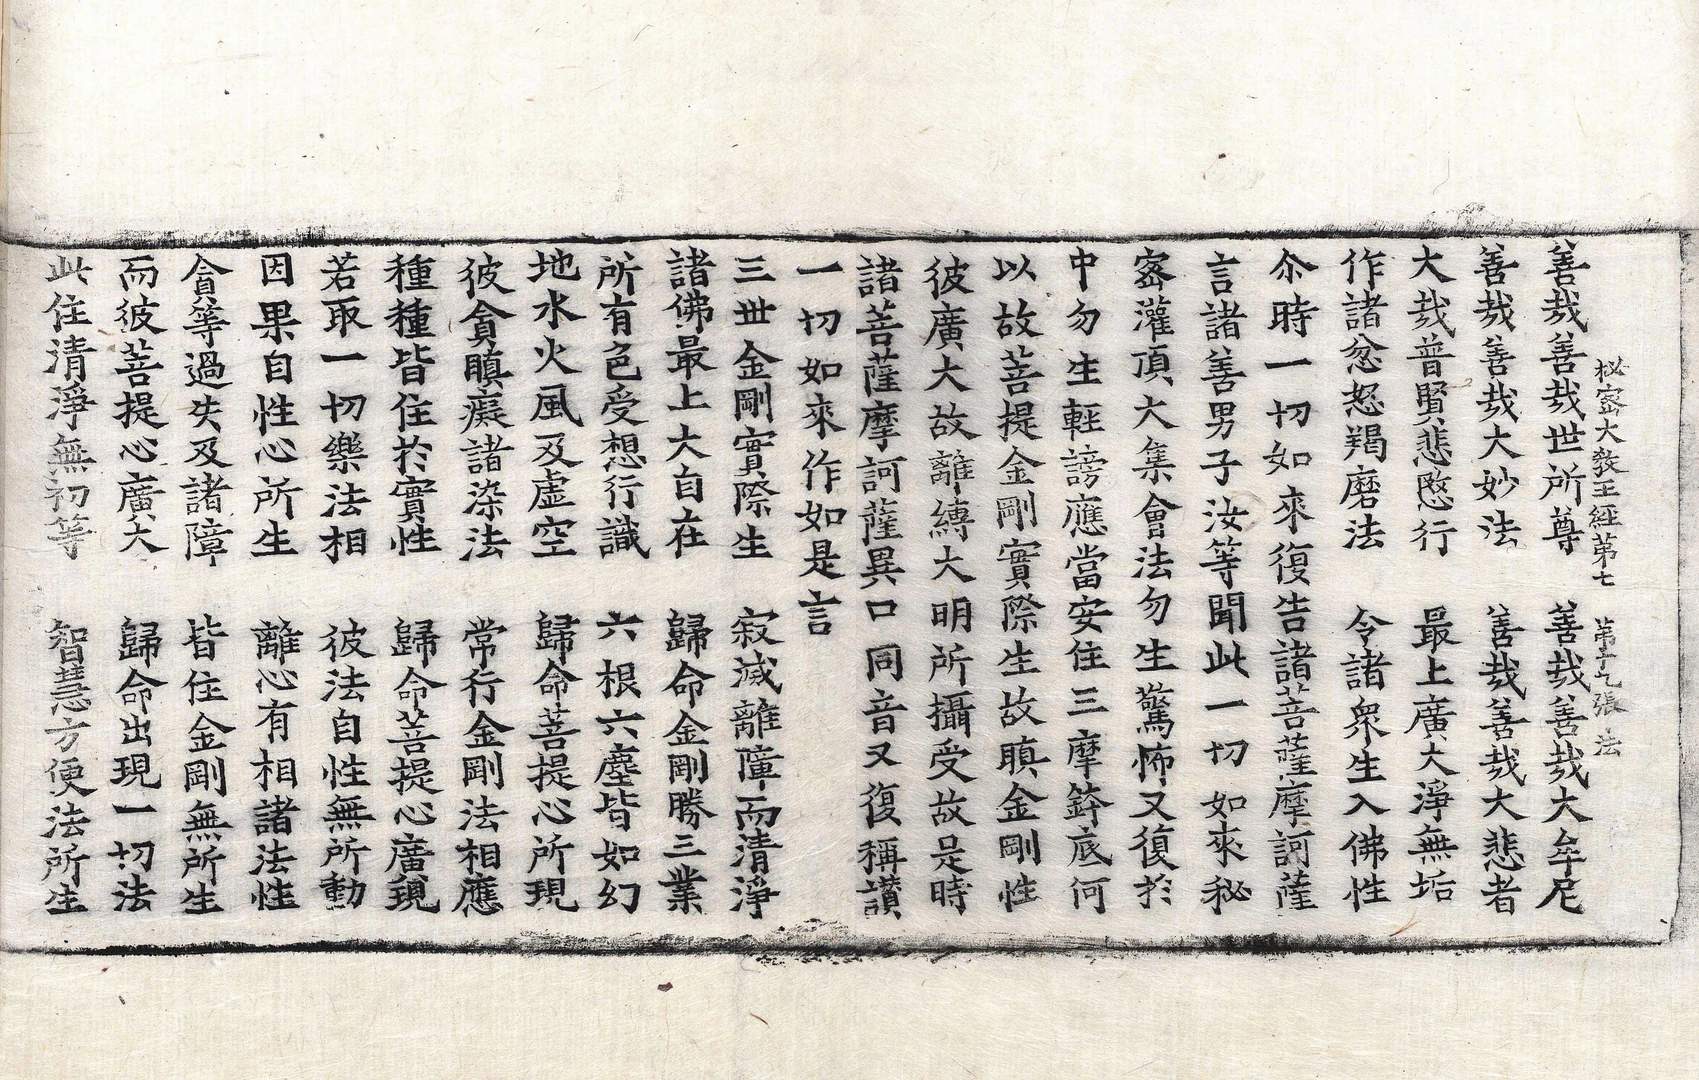 秘密大教王經第七 第十九張 法
善哉善哉世所尊 善哉善哉大牟尼
善哉善哉大妙法 善哉善哉大悲者
大哉普賢悲愍行 最上廣大淨無垢
作諸忿怒羯磨法 令諸衆生入佛性
尒時一切如來復告諸菩薩摩訶薩
言諸善男子汝等聞此一切如來秘
密灌頂大集會法勿生驚怖又復於
中勿生輕謗應當安住三摩鉢底何
以故菩提金剛實際生故瞋金剛性
彼廣大故離縛大明所攝受故是時
諸菩薩摩訶薩異口同音又復稱讃
一切如來作如是言
三世金剛實際生 寂滅離障而清淨
諸佛最上大自在 歸命金剛勝三業
所有色受想行識 六根六塵皆如幻
地水火風及虛空 歸命菩提心所現
彼貪瞋癡諸染法 常行金剛法相應
種種皆住於實性 歸命菩提心廣現
若取一切樂法相 彼法自性無所動
因果自性心所生 離心有相諸法性
貪等過失及諸障 皆住金剛無所生
而彼菩提心廣大 歸命出現一切法
此住清淨無初等 智慧方便法所生